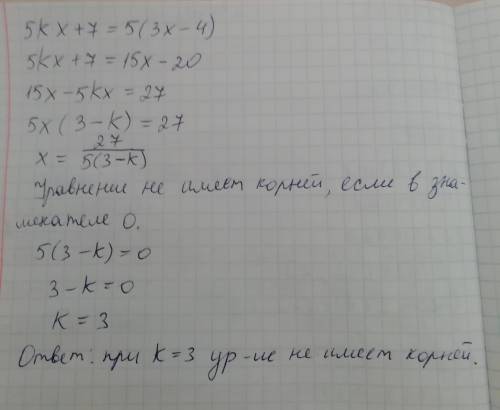 5kx+7=5(3x-4)
5kx+7=15x-20
15x-5kx=27
5x(3-k)=27
x = 27/5(3-k)
Уравнение не имеет корней, если в зна-
менателе 0.
5(3-k)=0
3-k=0
k=3
Ответ: при k=3 ур-ие не имеет корней.